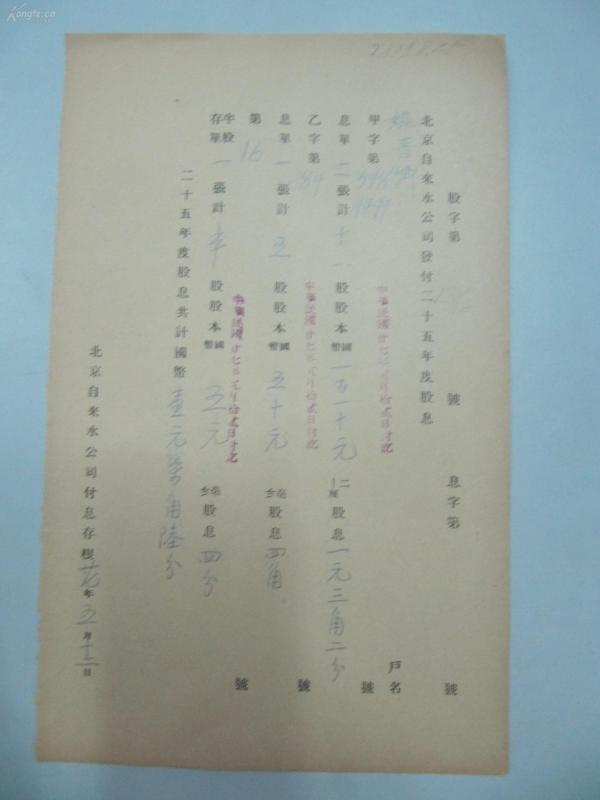 Kongfz.cn
股字第 號 息字第 號
北京自來水公司發付二十五年度股息
戶名
甲字第 號
息單二張計十一股股本國幣一百一十元 二厘 股息一元三角二分
中華民國廿七年五月拾貳日付訖
乙字第 號
息單一張計五股股本國幣五十元 股息四角
中華民國廿七年五月拾貳日付訖
第16 號
半股存單一張計半股股本國幣五元 股息四分
中華民國廿七年五月拾貳日付訖
二十五年度股息共計國幣壹元柒角陸分
北京自來水公司付息存根 廿七年五月十二日